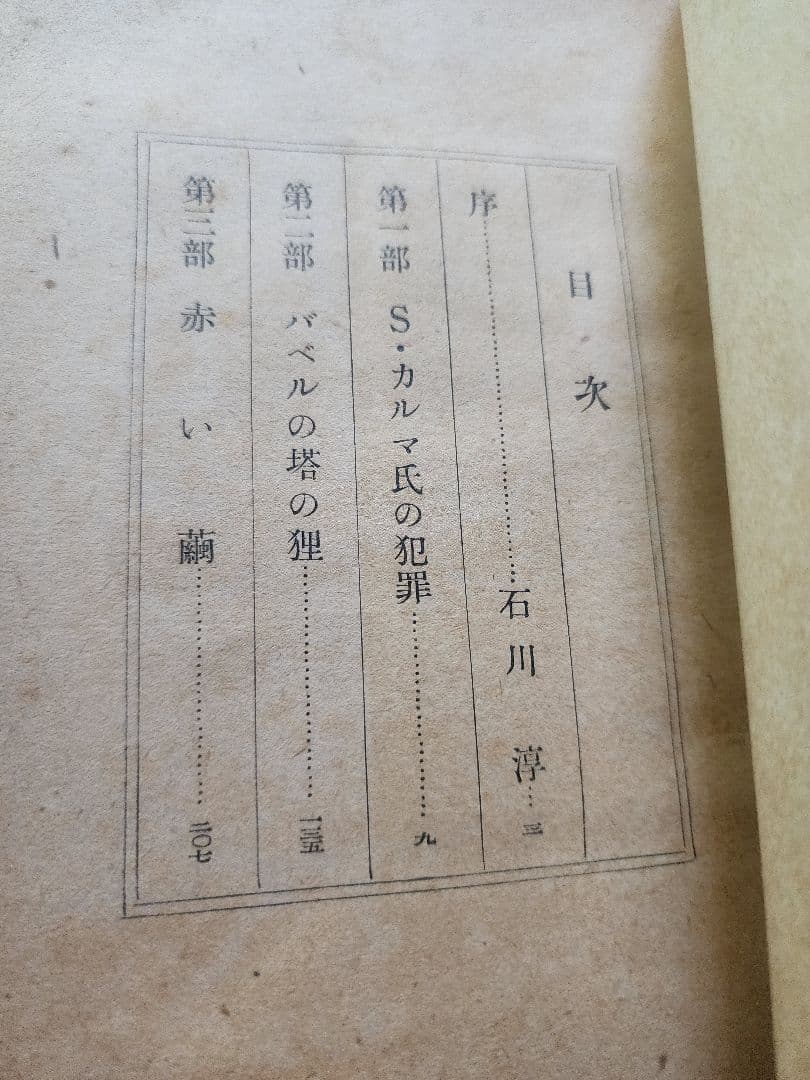 目次
序……………………石川淳…三
第一部 S・カルマ氏の犯罪……………………九
第二部 バベルの塔の狸……………………一三五
第三部 赤い繭……………………二〇七